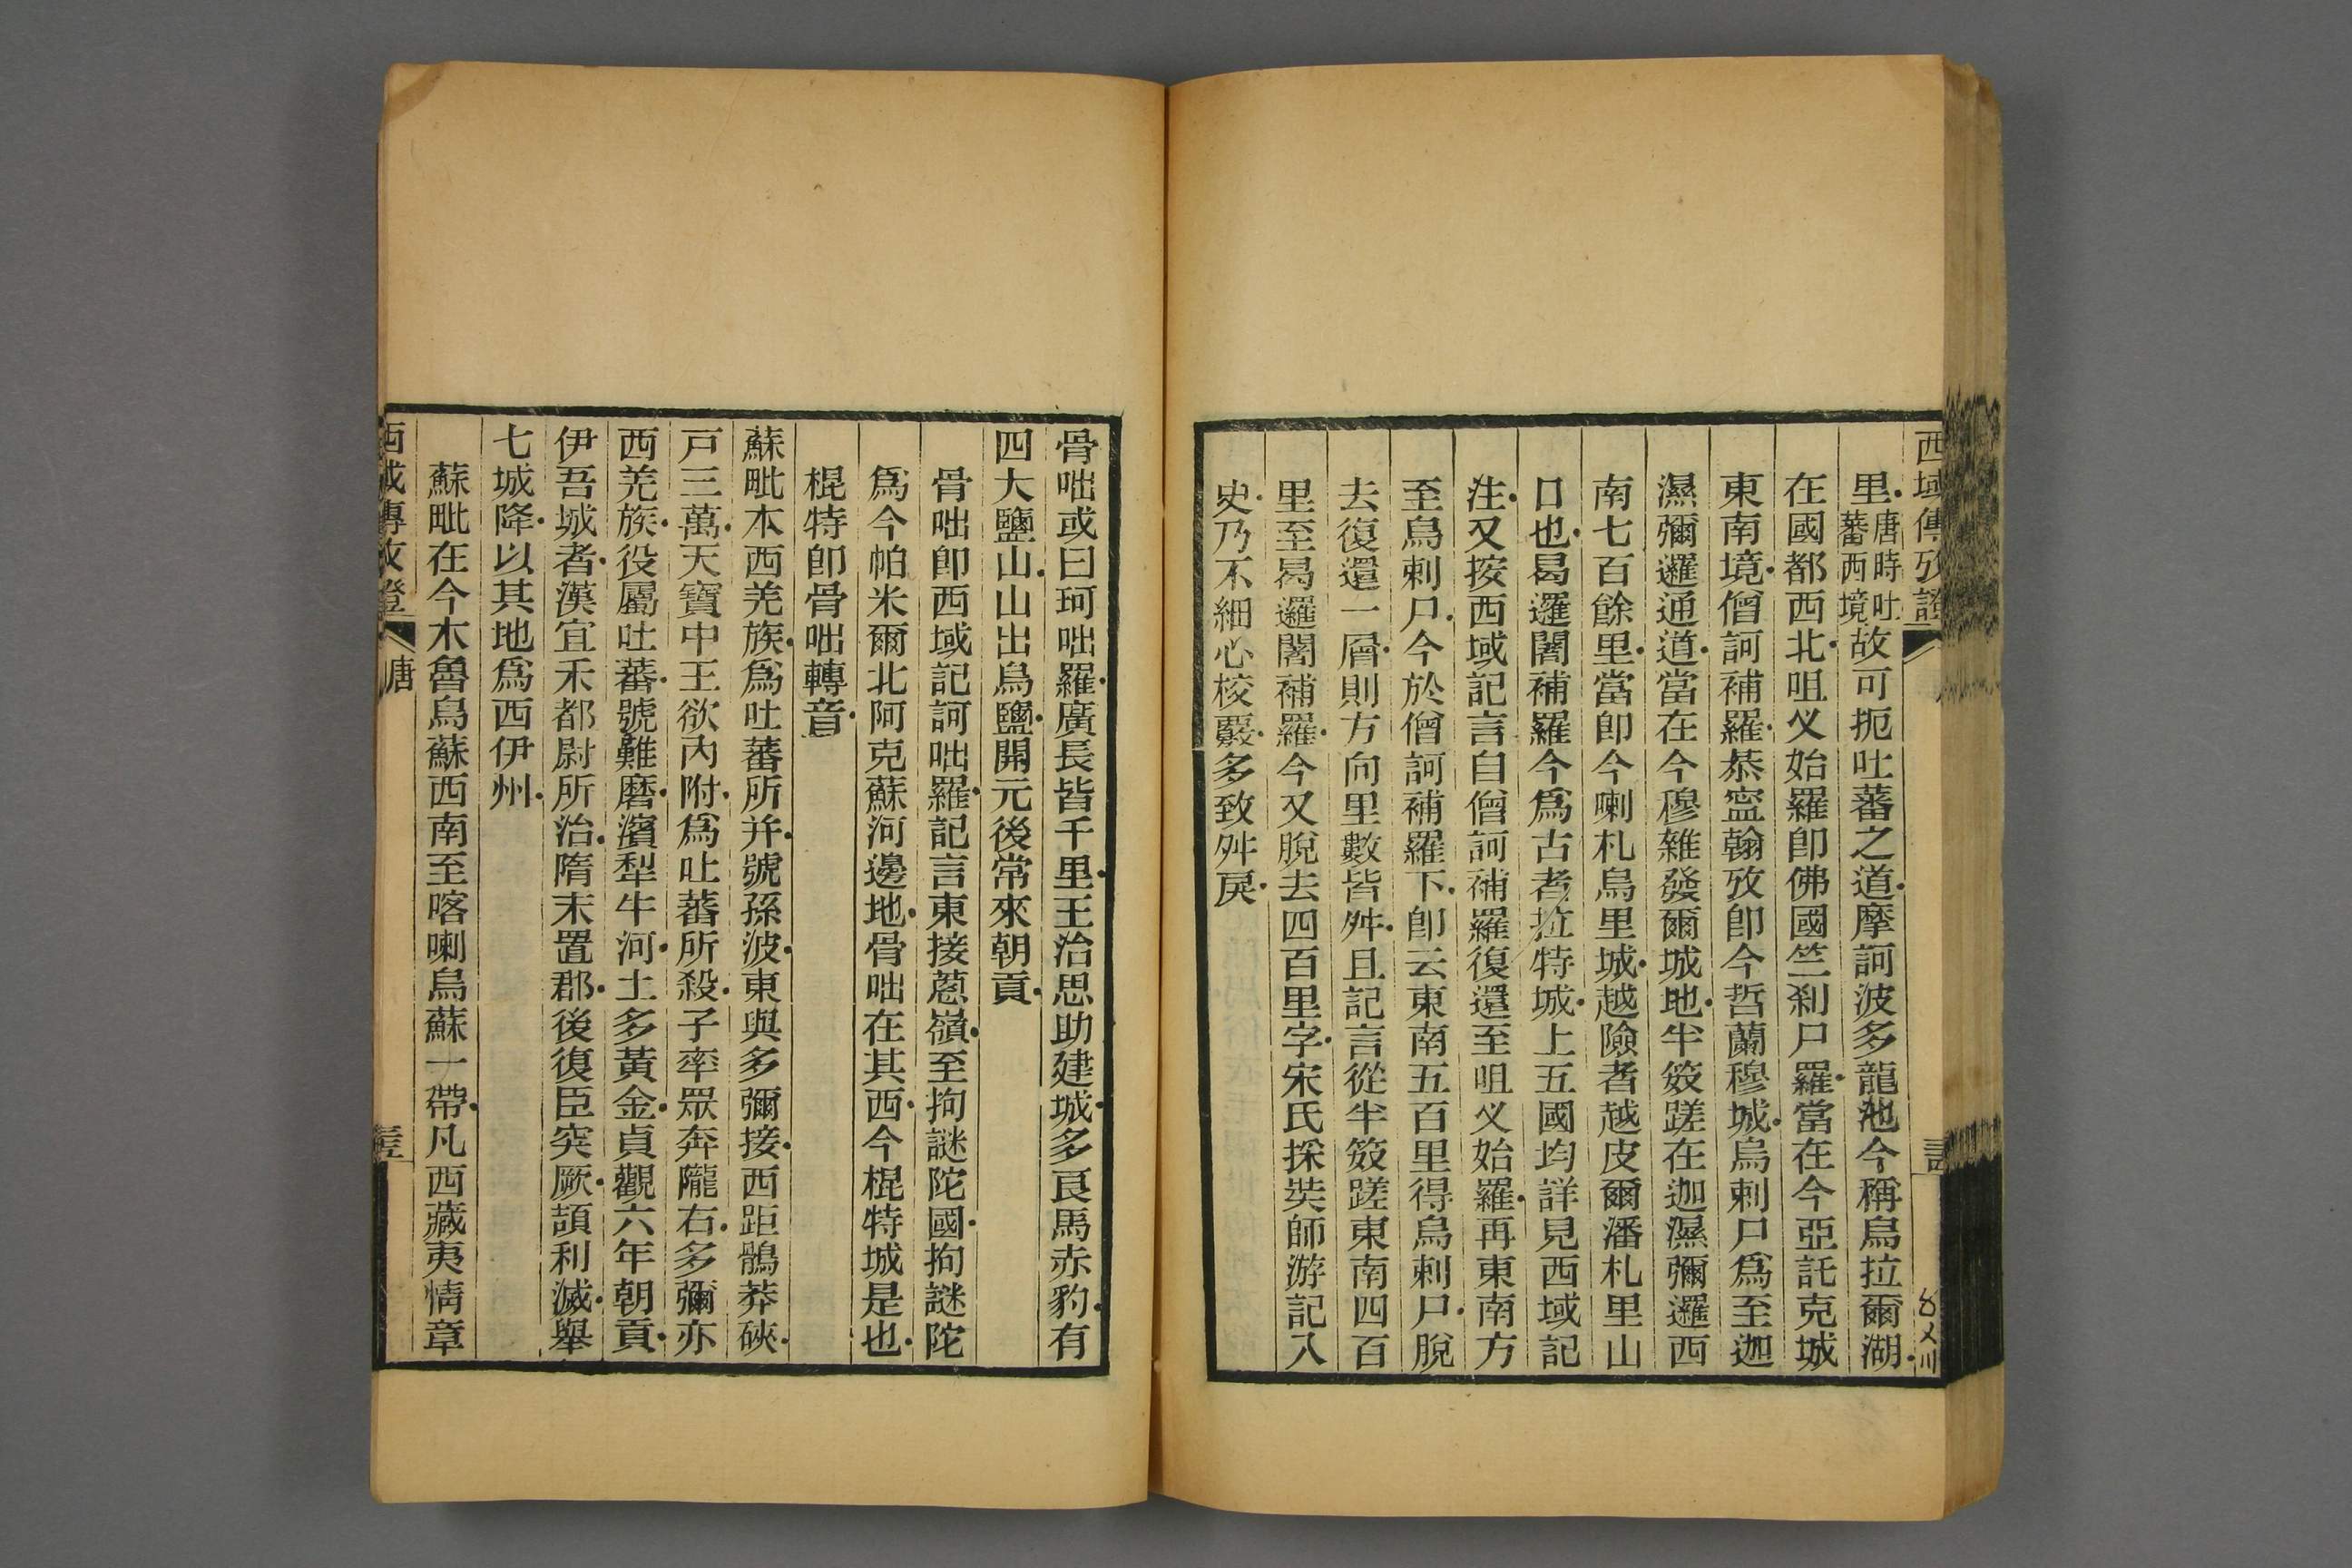 西域傳攷證
里唐時吐蕃西境故可扼吐蕃之道摩訶波多龍池今稱烏拉爾湖
在國都西北咀义始羅卽佛國竺刹尸羅當在今亞託克城
東南境僧訶補羅恭寍翰攷卽今哲蘭穆城烏剌尸爲至迦
濕彌邏通道當在今穆雜發爾城地半笯蹉在迦濕彌邏西
南七百餘里當卽今喇札烏里城越險者越皮爾潘札里山
口也曷邏闍補羅今爲古者拉特城上五國均詳見西域記
注又按西域記言自僧訶補羅復還至咀义始羅再東南方
至烏剌尸今於僧訶補羅下卽云東南五百里得烏剌尸脫
去復還一層則方向里數皆舛且記言從半笯蹉東南四百
里至曷邏闍補羅今又脫去四百里字宋氏採奘師游記入
史乃不細心校覈多致舛戾
骨咄或曰珂咄羅廣長皆千里王治思助建城多良馬赤豹有
四大鹽山山出烏鹽開元後常來朝貢
骨咄卽西域記訶咄羅記言東接蔥嶺至拘謎陀國拘謎陀
爲今帕米爾北阿克蘇河邊地骨咄在其西今棍特城是也
棍特卽骨咄轉音
蘇毗本西羌族爲吐蕃所并號孫波東與多彌接西距鶻莽硤
戸三萬天寶中王欲內附爲吐蕃所殺子率眾奔隴右多彌亦
西羌族役屬吐蕃號難磨濱犁牛河土多黃金貞觀六年朝貢
伊吾城者漢宜禾都尉所治隋末置郡後復臣突厥頡利滅舉
七城降以其地爲西伊州
蘇毗在今木魯烏蘇西南至喀喇烏蘇一帶凡西藏夷情章
西域傳攷證 唐